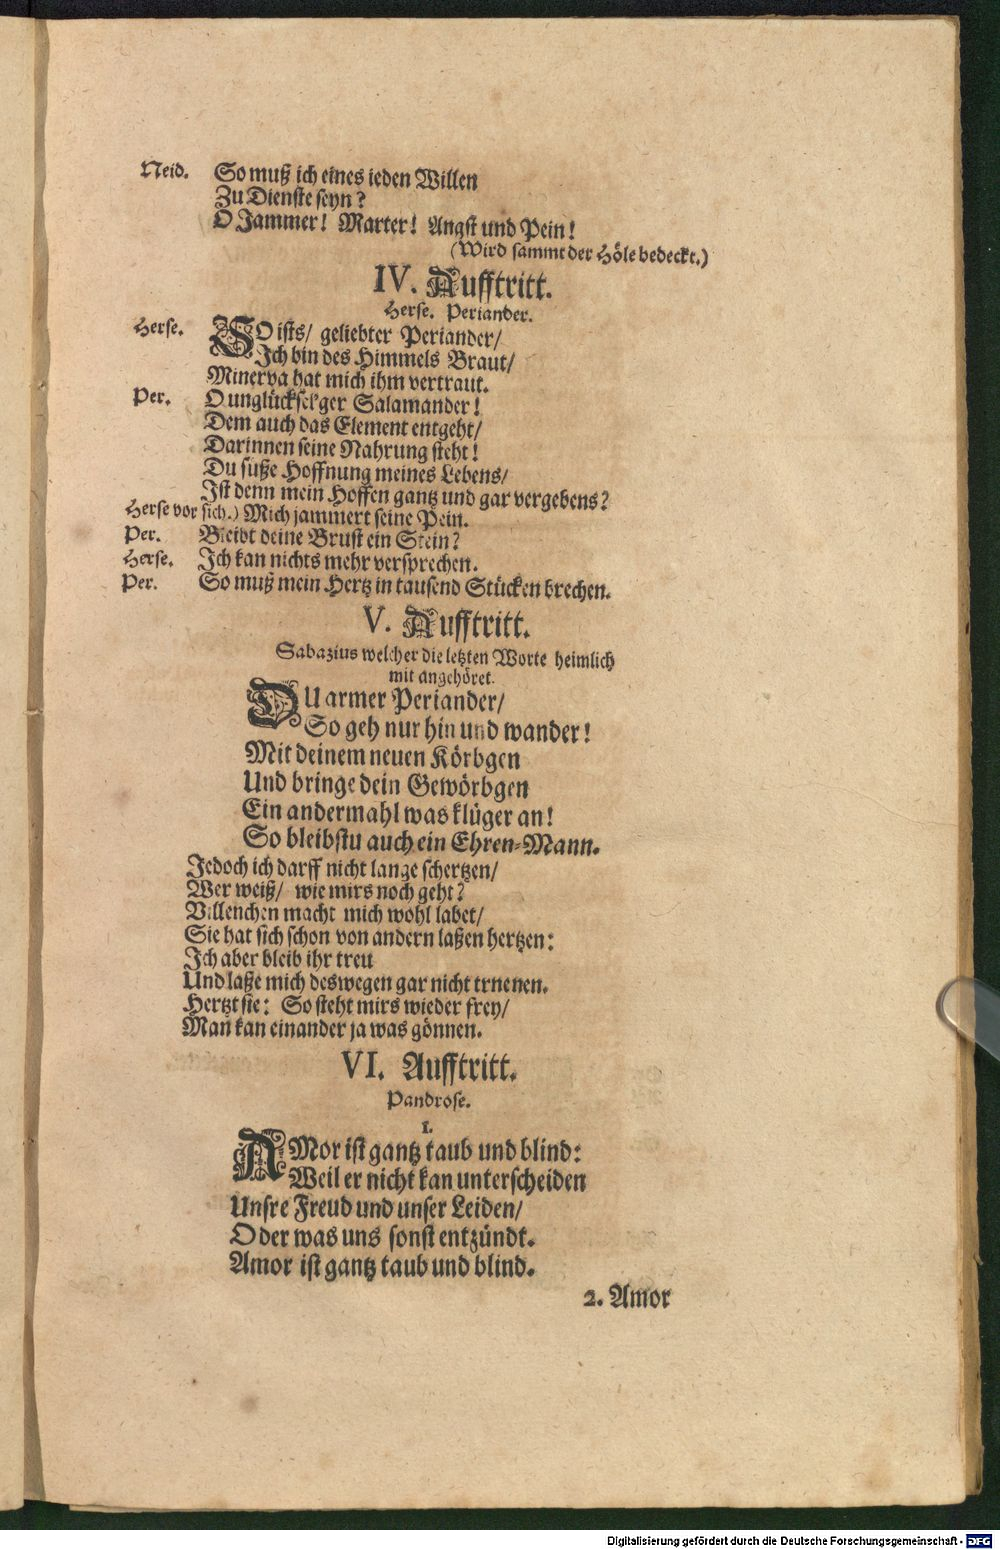 Neid. So muß ich eines ieden Willen
Zu Dienste seyn?
O Jammer! Marter! Angst und Pein!
(Wird sammt der Höle bedeckt.)
IV. Aufftritt.
Herse. Periander.
Herse. SO ists/ geliebter Periander/
Ich bin des Himmels Braut/
Minerva hat mich ihm vertraut.
Per. O unglücksel'ger Salamander!
Dem auch das Element entgeht/
Darinnen seine Nahrung steht!
Du süße Hoffnung meines Lebens/
Ist denn mein Hoffen gantz und gar vergebens?
Herse vor sich.) Mich jammert seine Pein.
Per. Bleibt deine Brust ein Stein?
Herse. Ich kan nichts mehr versprechen.
Per. So muß mein Hertz in tausend Stücken brechen.
V. Aufftritt.
Sabazius welcher die letzten Worte heimlich
mit angehöret.
DU armer Periander/
So geh nur hin und wander!
Mit deinem neuen Körbgen
Und bringe dein Gewörbgen
Ein andermahl was klüger an!
So bleibstu auch ein Ehren-Mann.
Jedoch ich darff nicht lange schertzen/
Wer weiß/ wie mirs noch geht?
Villenchen macht mich wohl labet/
Sie hat sich schon von andern laßen hertzen:
Ich aber bleib ihr treu
Und laße mich deswegen gar nicht trnenen.
Hertzt sie: So steht mirs wieder frey/
Man kan einander ja was gönnen.
VI. Aufftritt.
Pandrose.
1.
AMor ist gantz taub und blind:
Weil er nicht kan unterscheiden
Unsre Freud und unser Leiden/
Oder was uns sonst entzündt.
Amor ist gantz taub und blind.
2. Amor
Digitalisierung gefördert durch die Deutsche Forschungsgemeinschaft - DFG